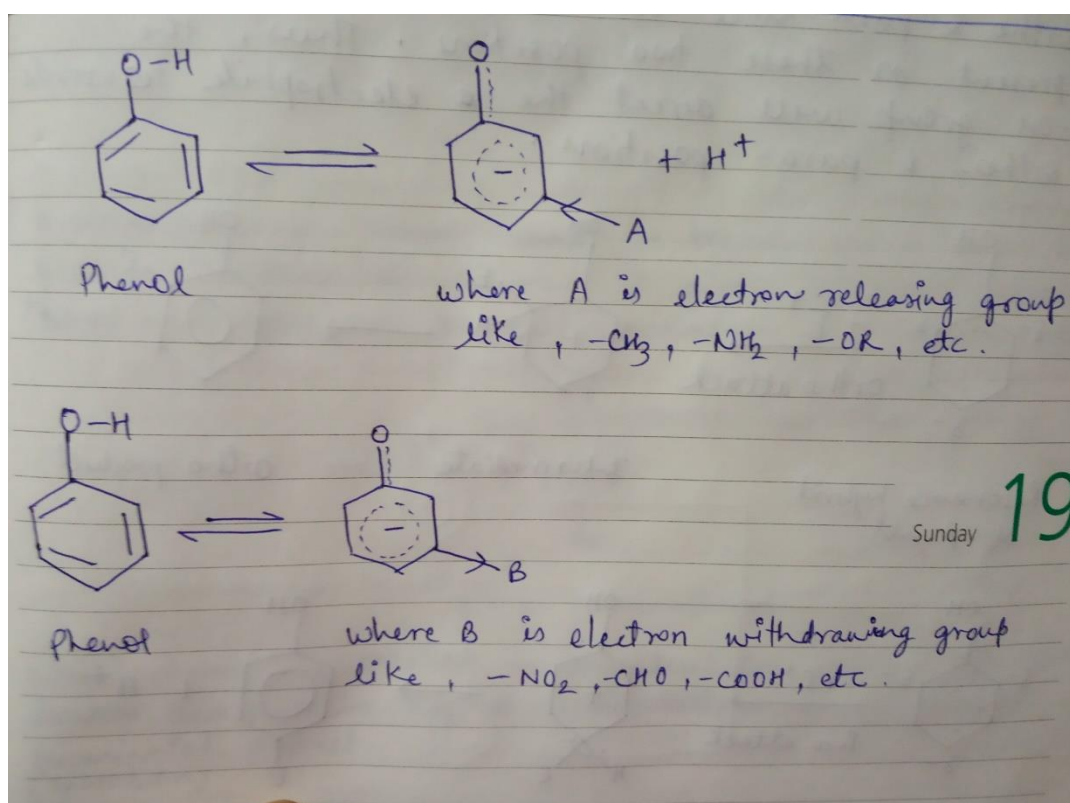 O-H
O
+ H+
A
Phenol
where A is electron releasing group
like , -CH3 , -NH2 , -OR , etc .
O-H
O
Sunday 19
B
Phenol
where B is electron withdrawing group
like , - NO2 , -CHO , -COOH , etc .